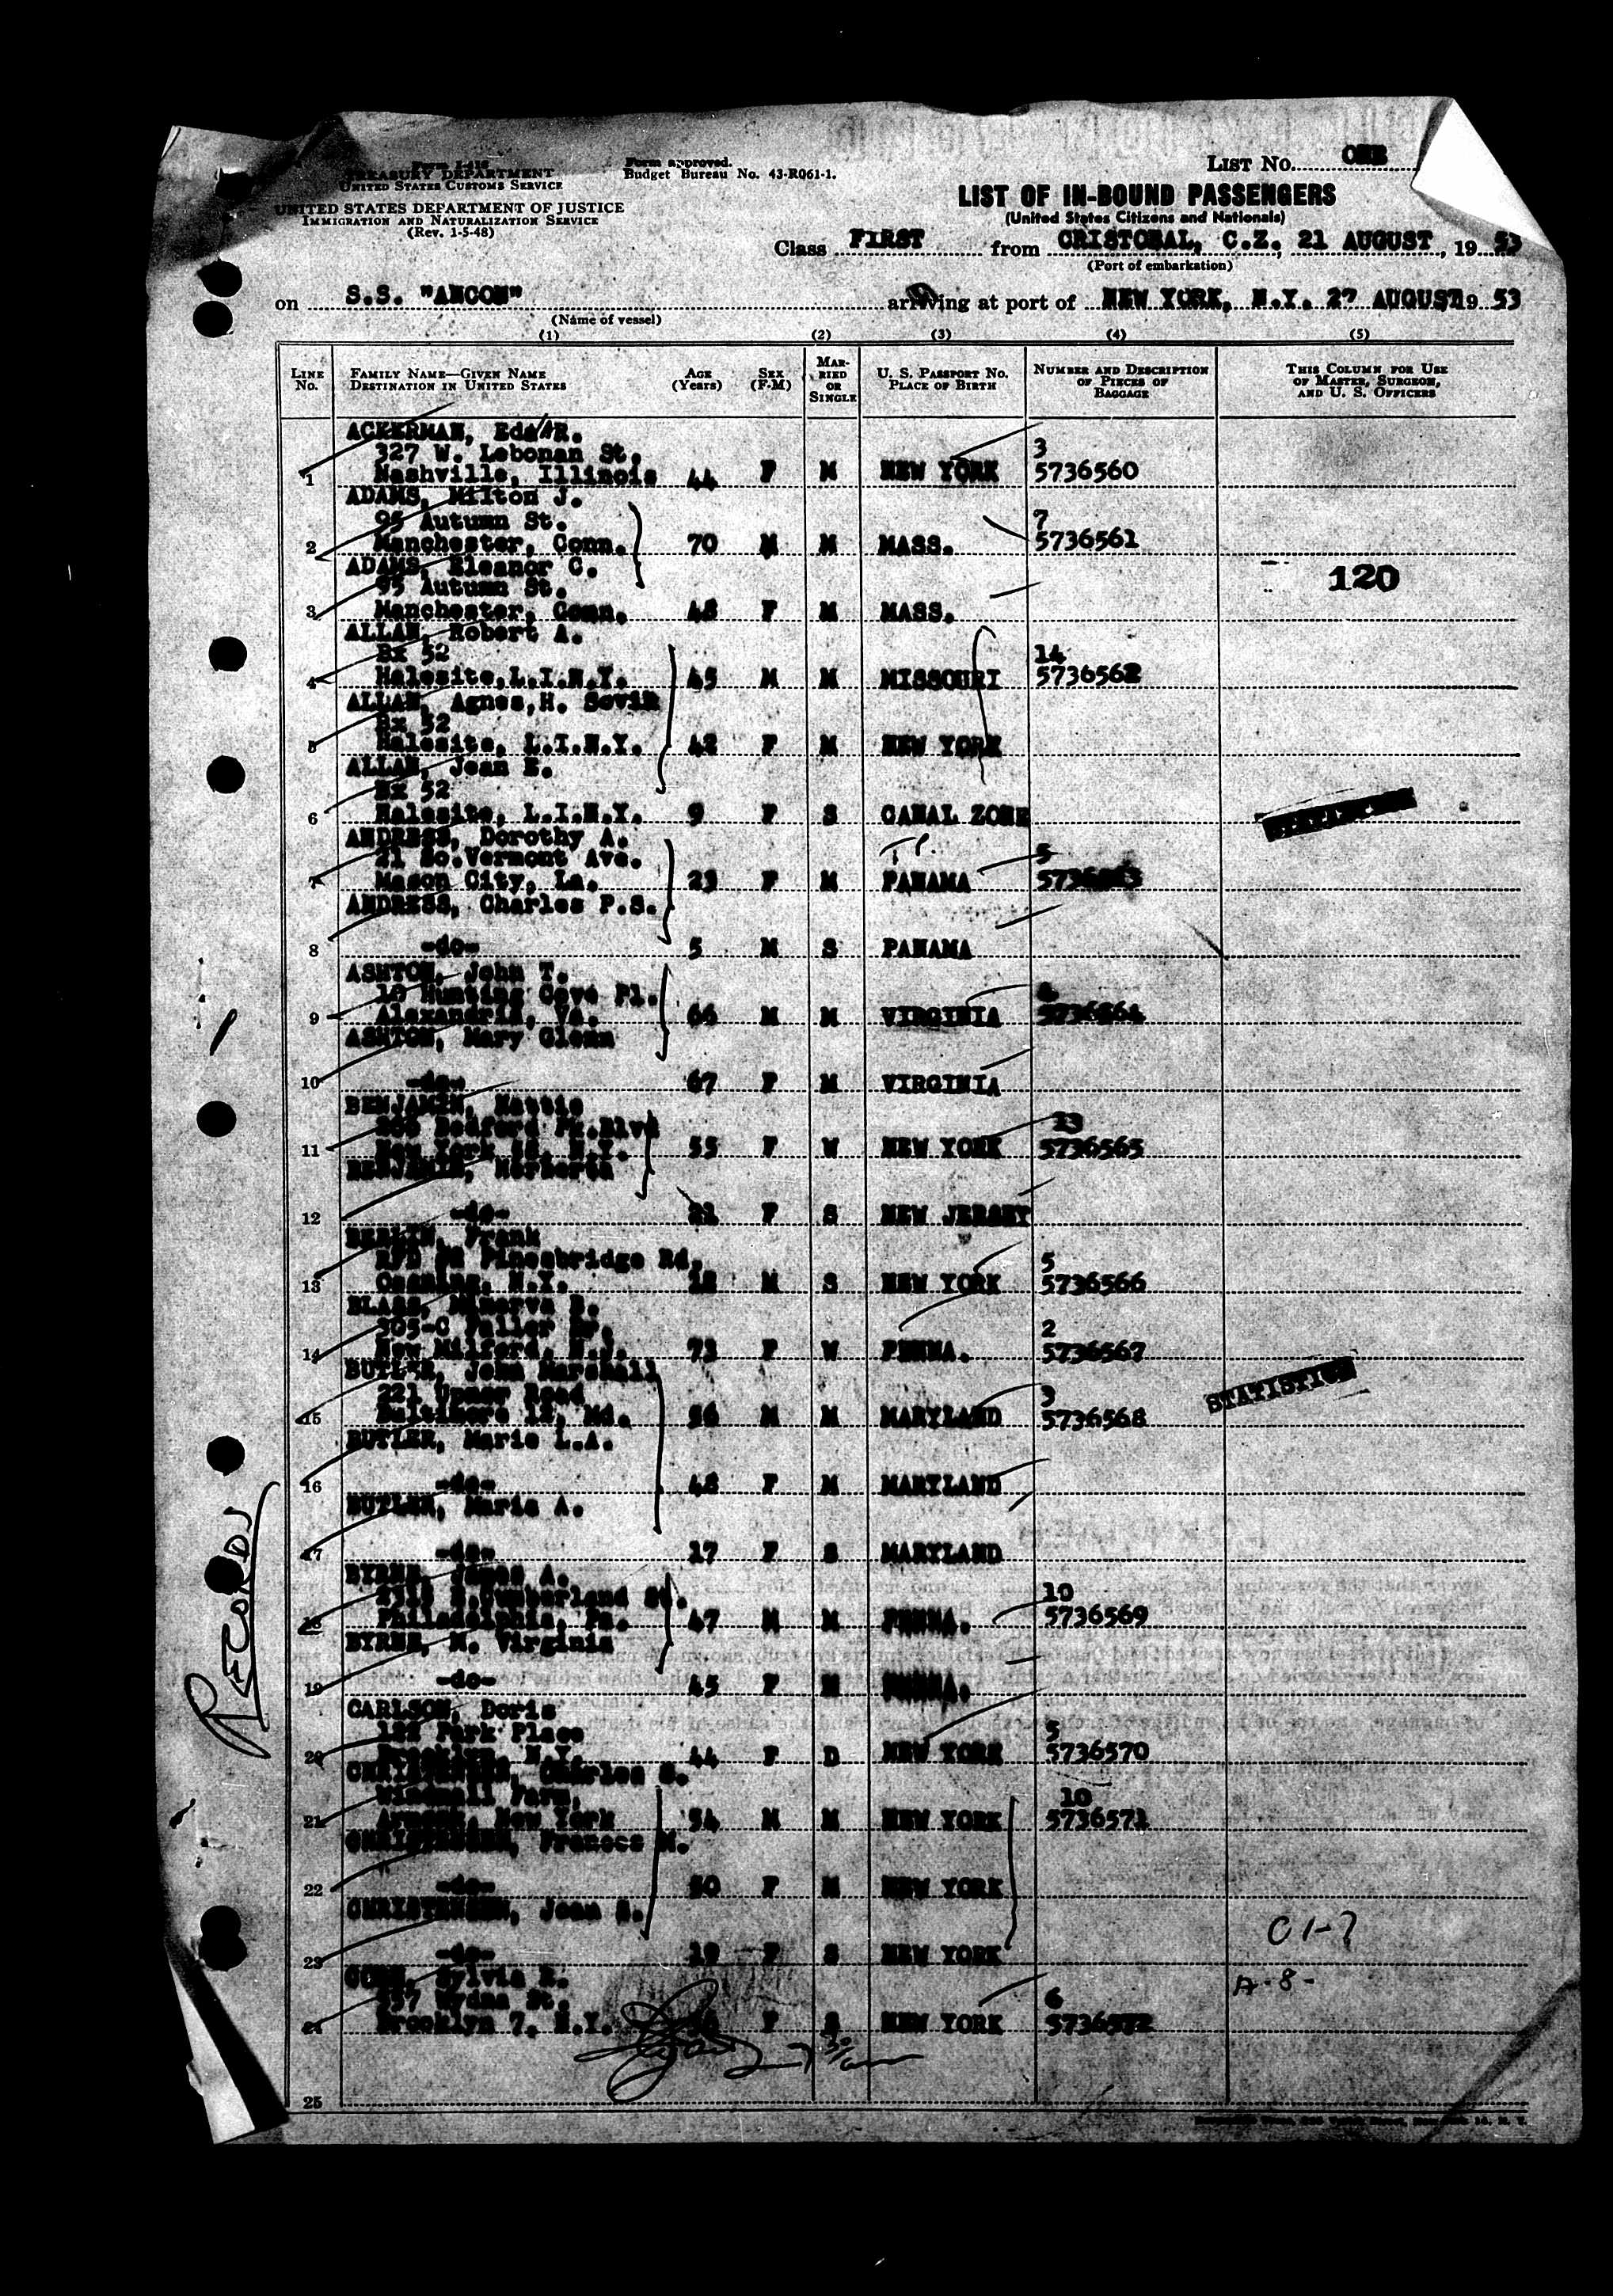 Form I-416
TREASURY DEPARTMENT
UNITED STATES CUSTOMS SERVICE
UNITED STATES DEPARTMENT OF JUSTICE
IMMIGRATION AND NATURALIZATION SERVICE
(Rev. 1-5-48)
Form approved.
Budget Bureau No. 43-R061-1.
LIST No. ONE
LIST OF IN-BOUND PASSENGERS
(United States Citizens and Nationals)
Class FIRST from CRISTOBAL, C.Z. 21 AUGUST, 19 53
(Port of embarkation)
on S.S. "ANCON" arriving at port of NEW YORK, N.Y. 27 AUGUST 19 53
(Name of vessel)
(1) (2) (3) (4) (5)
LINE No. FAMILY NAME—GIVEN NAME DESTINATION IN UNITED STATES AGE (Years) SEX (F-M) MARRIED OR SINGLE U. S. PASSPORT NO. PLACE OF BIRTH NUMBER AND DESCRIPTION OF PIECES OF BAGGAGE THIS COLUMN FOR USE OF MASTER, SURGEON, AND U. S. OFFICERS
ACKERMAN, Eda R.
327 W. Lebonan St. 3
1 Nashville, Illinois 44 F M NEW YORK 5736560
ADAMS, Milton J.
95 Autumn St. 7
2 Manchester, Conn. 70 M M MASS. 5736561
ADAMS, Eleanor C.
95 Autumn St. 120
3 Manchester, Conn. 48 F M MASS.
ALLAN, Robert A.
Bx 52 14
4 Halesite, L.I.N.Y. 45 M M MISSOURI 5736562
ALLAN, Agnes, H.
Bx 52
5 Halesite, L.I.N.Y. 42 F M NEW YORK
ALLAN, Jean E.
Bx 52
6 Halesite, L.I.N.Y. 9 F S CANAL ZONE
ANDRESS, Dorothy A.
21 So.Vermont Ave. 5
7 Mason City, La. 23 F M PANAMA 5736563
ANDRESS, Charles P.S.
8 -do- 5 M S PANAMA
ASHTON, John T.
10 Hunting Cove Pl.
9 Alexandria, Va. 66 M M VIRGINIA 5736564
ASHTON, Mary Glenn
10 -do- 67 F M VIRGINIA
BENJAMIN, Hattie
Bedford Pk.Blvd 13
11 New York N.Y. 55 F W NEW YORK 5736565
BENJAMIN,
12 -do- 21 F S NEW JERSEY
BERLIN, Frank
RFD Pinesbridge Rd. 5
13 Ossining, N.Y. 12 M S NEW YORK 5736566
BLASS, Minerva
305-C Fuller 2
14 New Milford, N.J. 73 F W PENNA. 5736567
BUTLER, John Marshall
221 Road 3
15 Baltimore 12, Md. 56 M M MARYLAND 5736568
STATISTICS
BUTLER, Marie L.A.
16 -do- 48 F M MARYLAND
BUTLER, Marie A.
17 -do- 17 F S MARYLAND
BYRNE, James A.
2315 E.Cumberland St. 10
18 Philadelphia, Pa. 47 M M PENNA. 5736569
BYRNE, M. Virginia
19 -do- 45 F M PENNA.
CARLSON, Doris
122 Park Place 5
20 Brooklyn, N.Y. 44 F D NEW YORK 5736570
CHRISTENSEN, Charles S.
Windmill Farm, 10
21 Armonk, New York 54 M M NEW YORK 5736571
CHRISTENSEN, Frances M.
22 -do- 50 F M NEW YORK
CHRISTENSEN, Joan S.
23 -do- 19 F S NEW YORK
C1-7
Sylvia R. A-8-
St. 6
24 Brooklyn 7, N.Y. F S NEW YORK 5736572
25
RECORDS